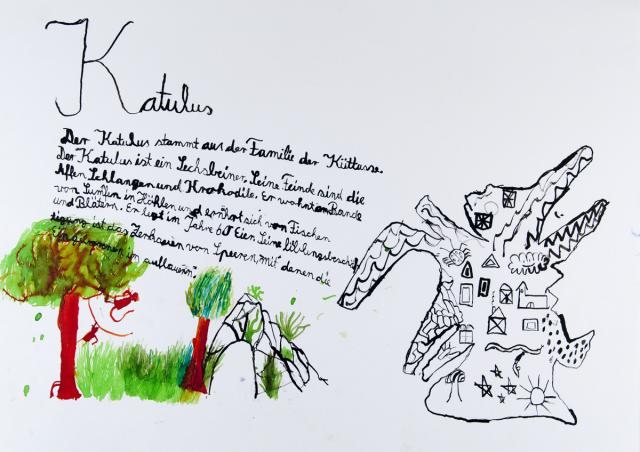 Katulus
Der Katulus stammt aus der Familie der Küttusse.
Der Katulus ist ein Sechsbeiner. Seine Feinde sind die
Affen Schlangen und Krokodile. Er wohnt am Rande
von Sümfen in Höhlen und ernährt sich von Fischen
und Blätern. Er legt im Jahre 60 Eier. Seine lieblingsbeschäf
tigung ist das Zerkauen von Speeren, mit denen die
im auflauern.